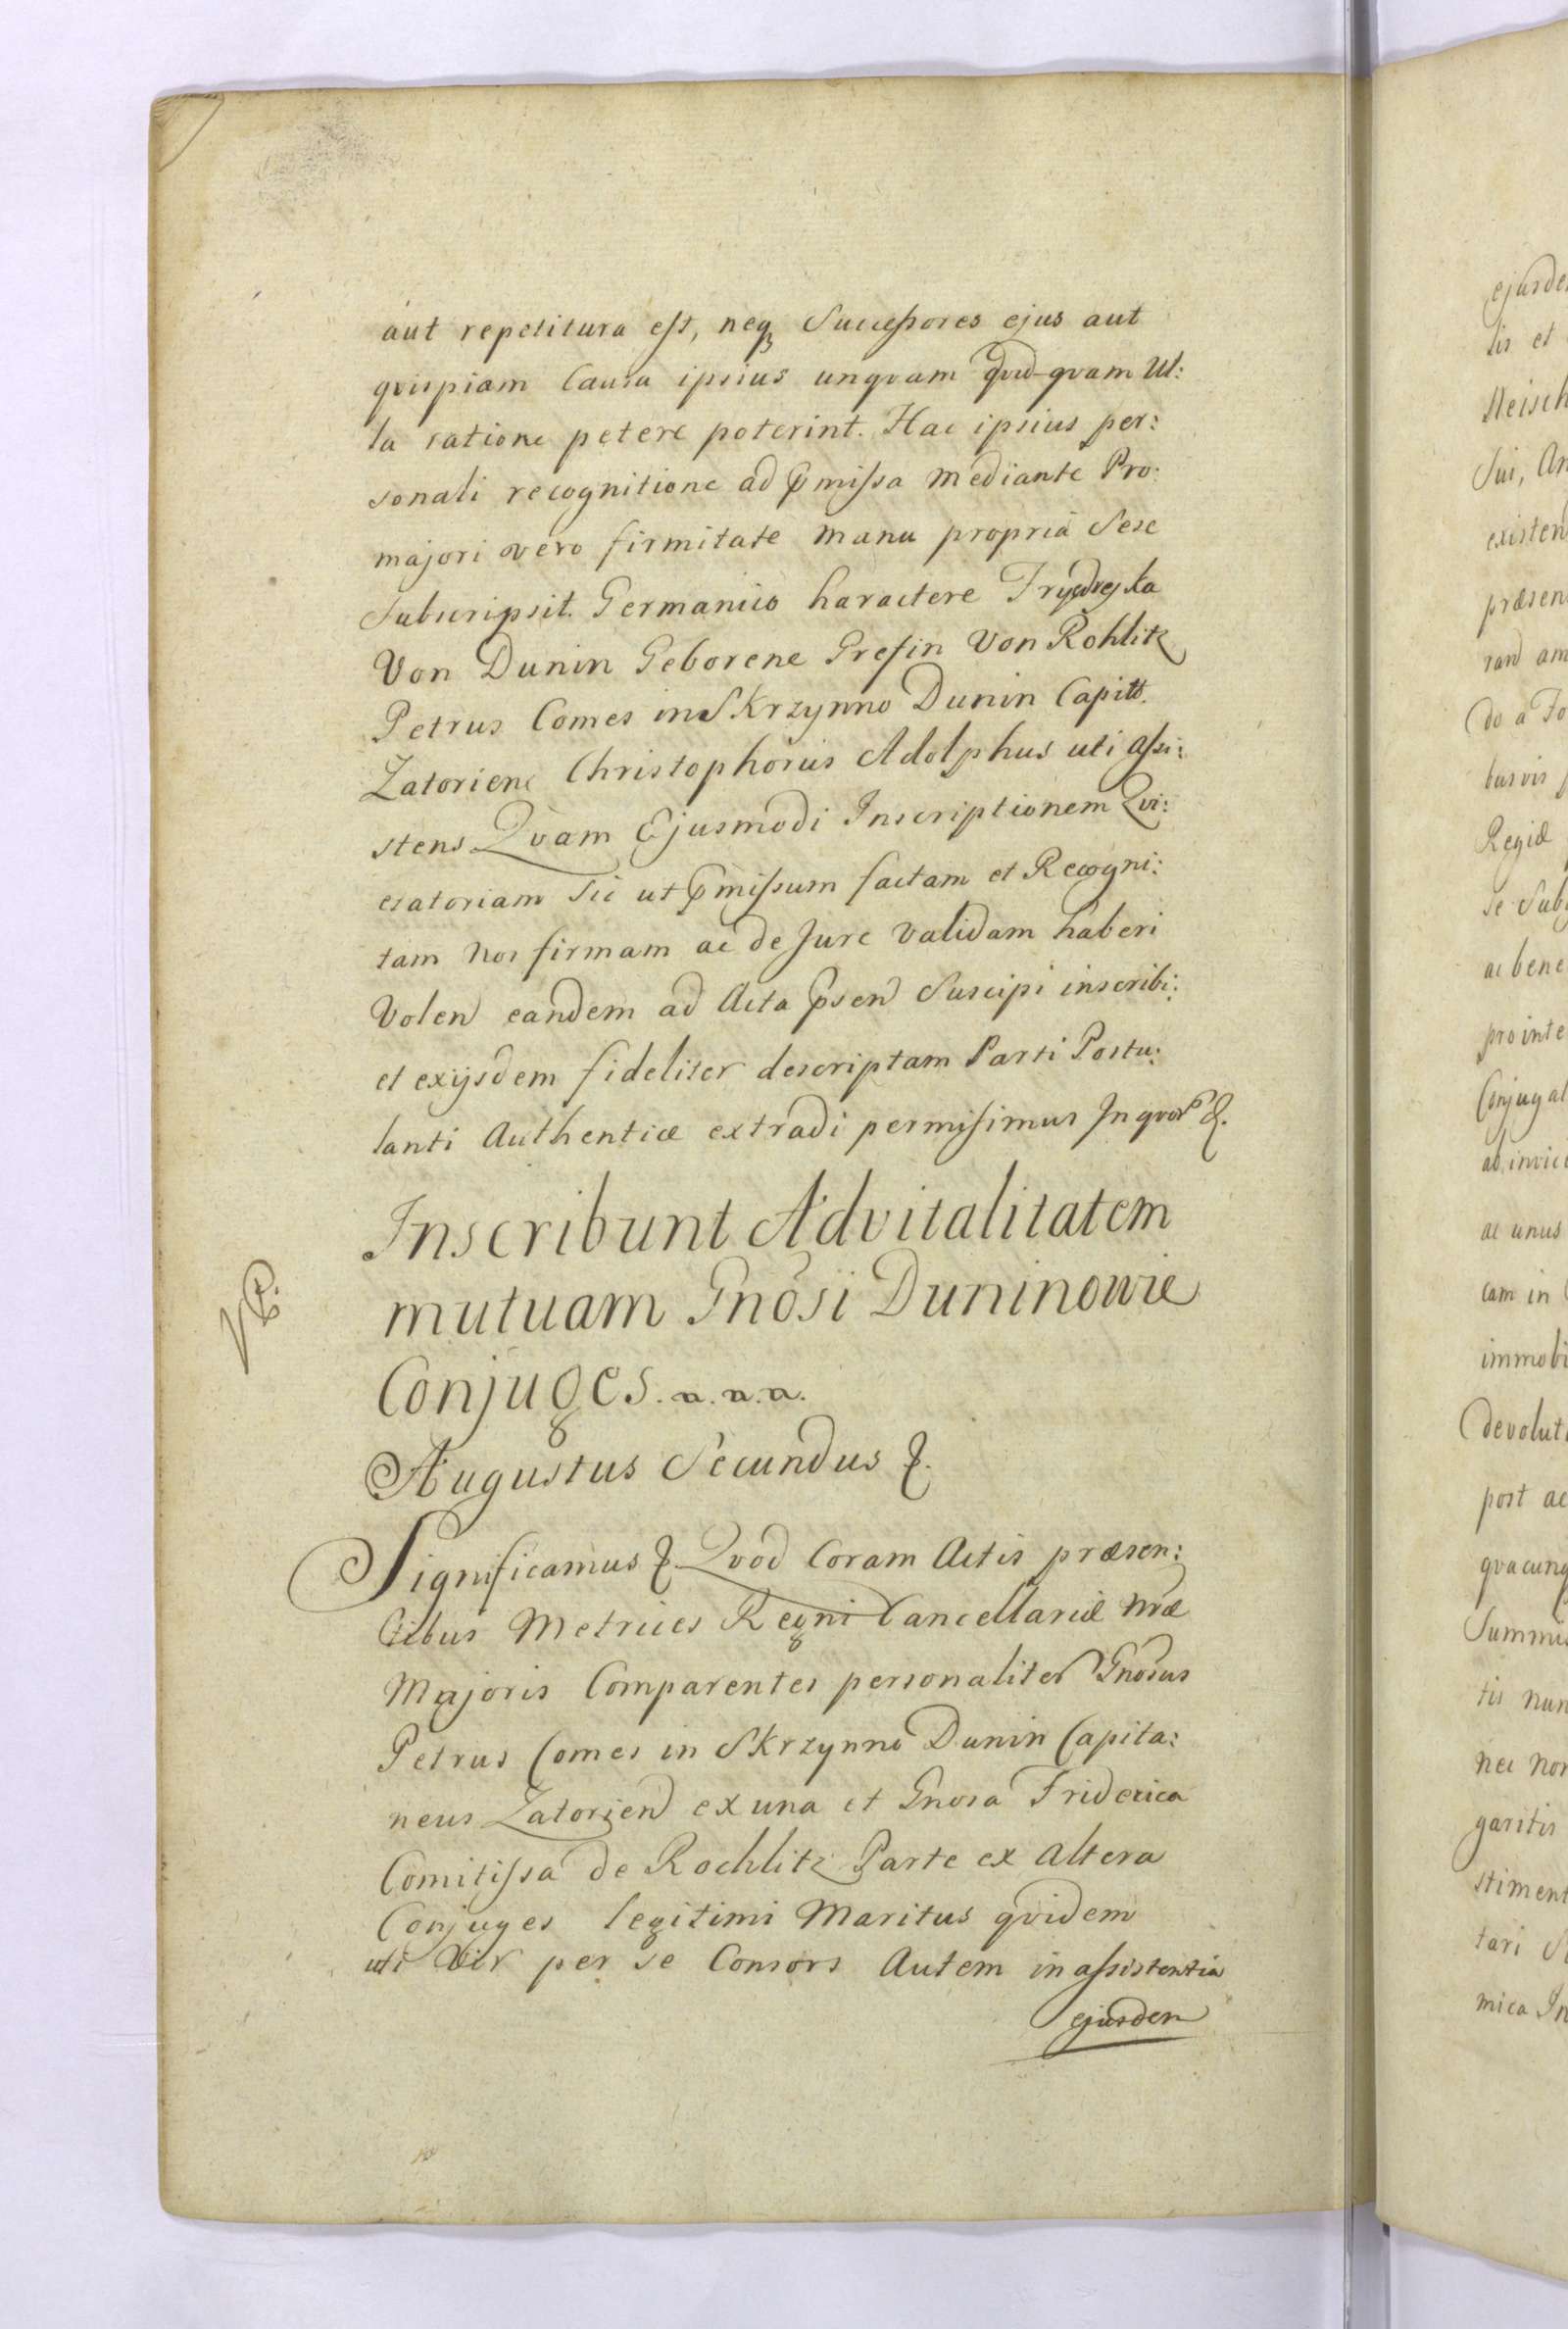 aut repetitura est, neq₃ Successores ejus aut
qvispiam Causa ipsius unqvam qvid-qvam Ul:
la ratione petere poterint. Hac ipsius per:
sonali recognitione ad pmissa mediante Pro:
majori vero firmitate manu propria Sese
Subscripsit. Germanico haractere Frydrejka
Von Dunin Geborene Grefin Von Rohlitz
Petrus Comes in Skrzynno Dunin Capitt.
Zatorien Christophorus Adolphus uti assi:
stens Qvam Ejusmodi Inscriptionem Qvi:
etatoriam Sic ut pmissum factam et Recogni:
tam Nos firmam ac de Jure Validam haberi
Volen eandem ad Acta psen Suscipi inscribi:
et exijsdem fideliter descriptam Parti Postu:
lanti Authenticæ extradi permisimus In qvor &.
Inscribunt Advitalitatem
mutuam Gnosi Duninowie
Conjuges. a. a. a.
Augustus Secundus &.
Significamus &. Qvod Coram Actis præsen:
tibus Metrices Regni Cancellariæ Nræ
Majoris Comparentes personaliter Gnosus
Petrus Comes in Skrzynno Dunin Capita:
neus Zatorien ex una et Gnosa Friderica
Comitissa de Rochlitz Parte ex Altera
Conjuges legitimi Maritus qvidem
uti Vir per se Consors Autem in assistentia
ejusdem
ejusde
tis et
Meisch
Sui, An
existen
præsen
rand am
do a Fo
busvis
Regiæ
se Sub
ac bene
pro inte
Conjugal
ab invic
ac unus
cam in
immobi
devolut
post ac
qvacunq
Summis
tis nun
nec non
garitis
stiment
tari
mica In